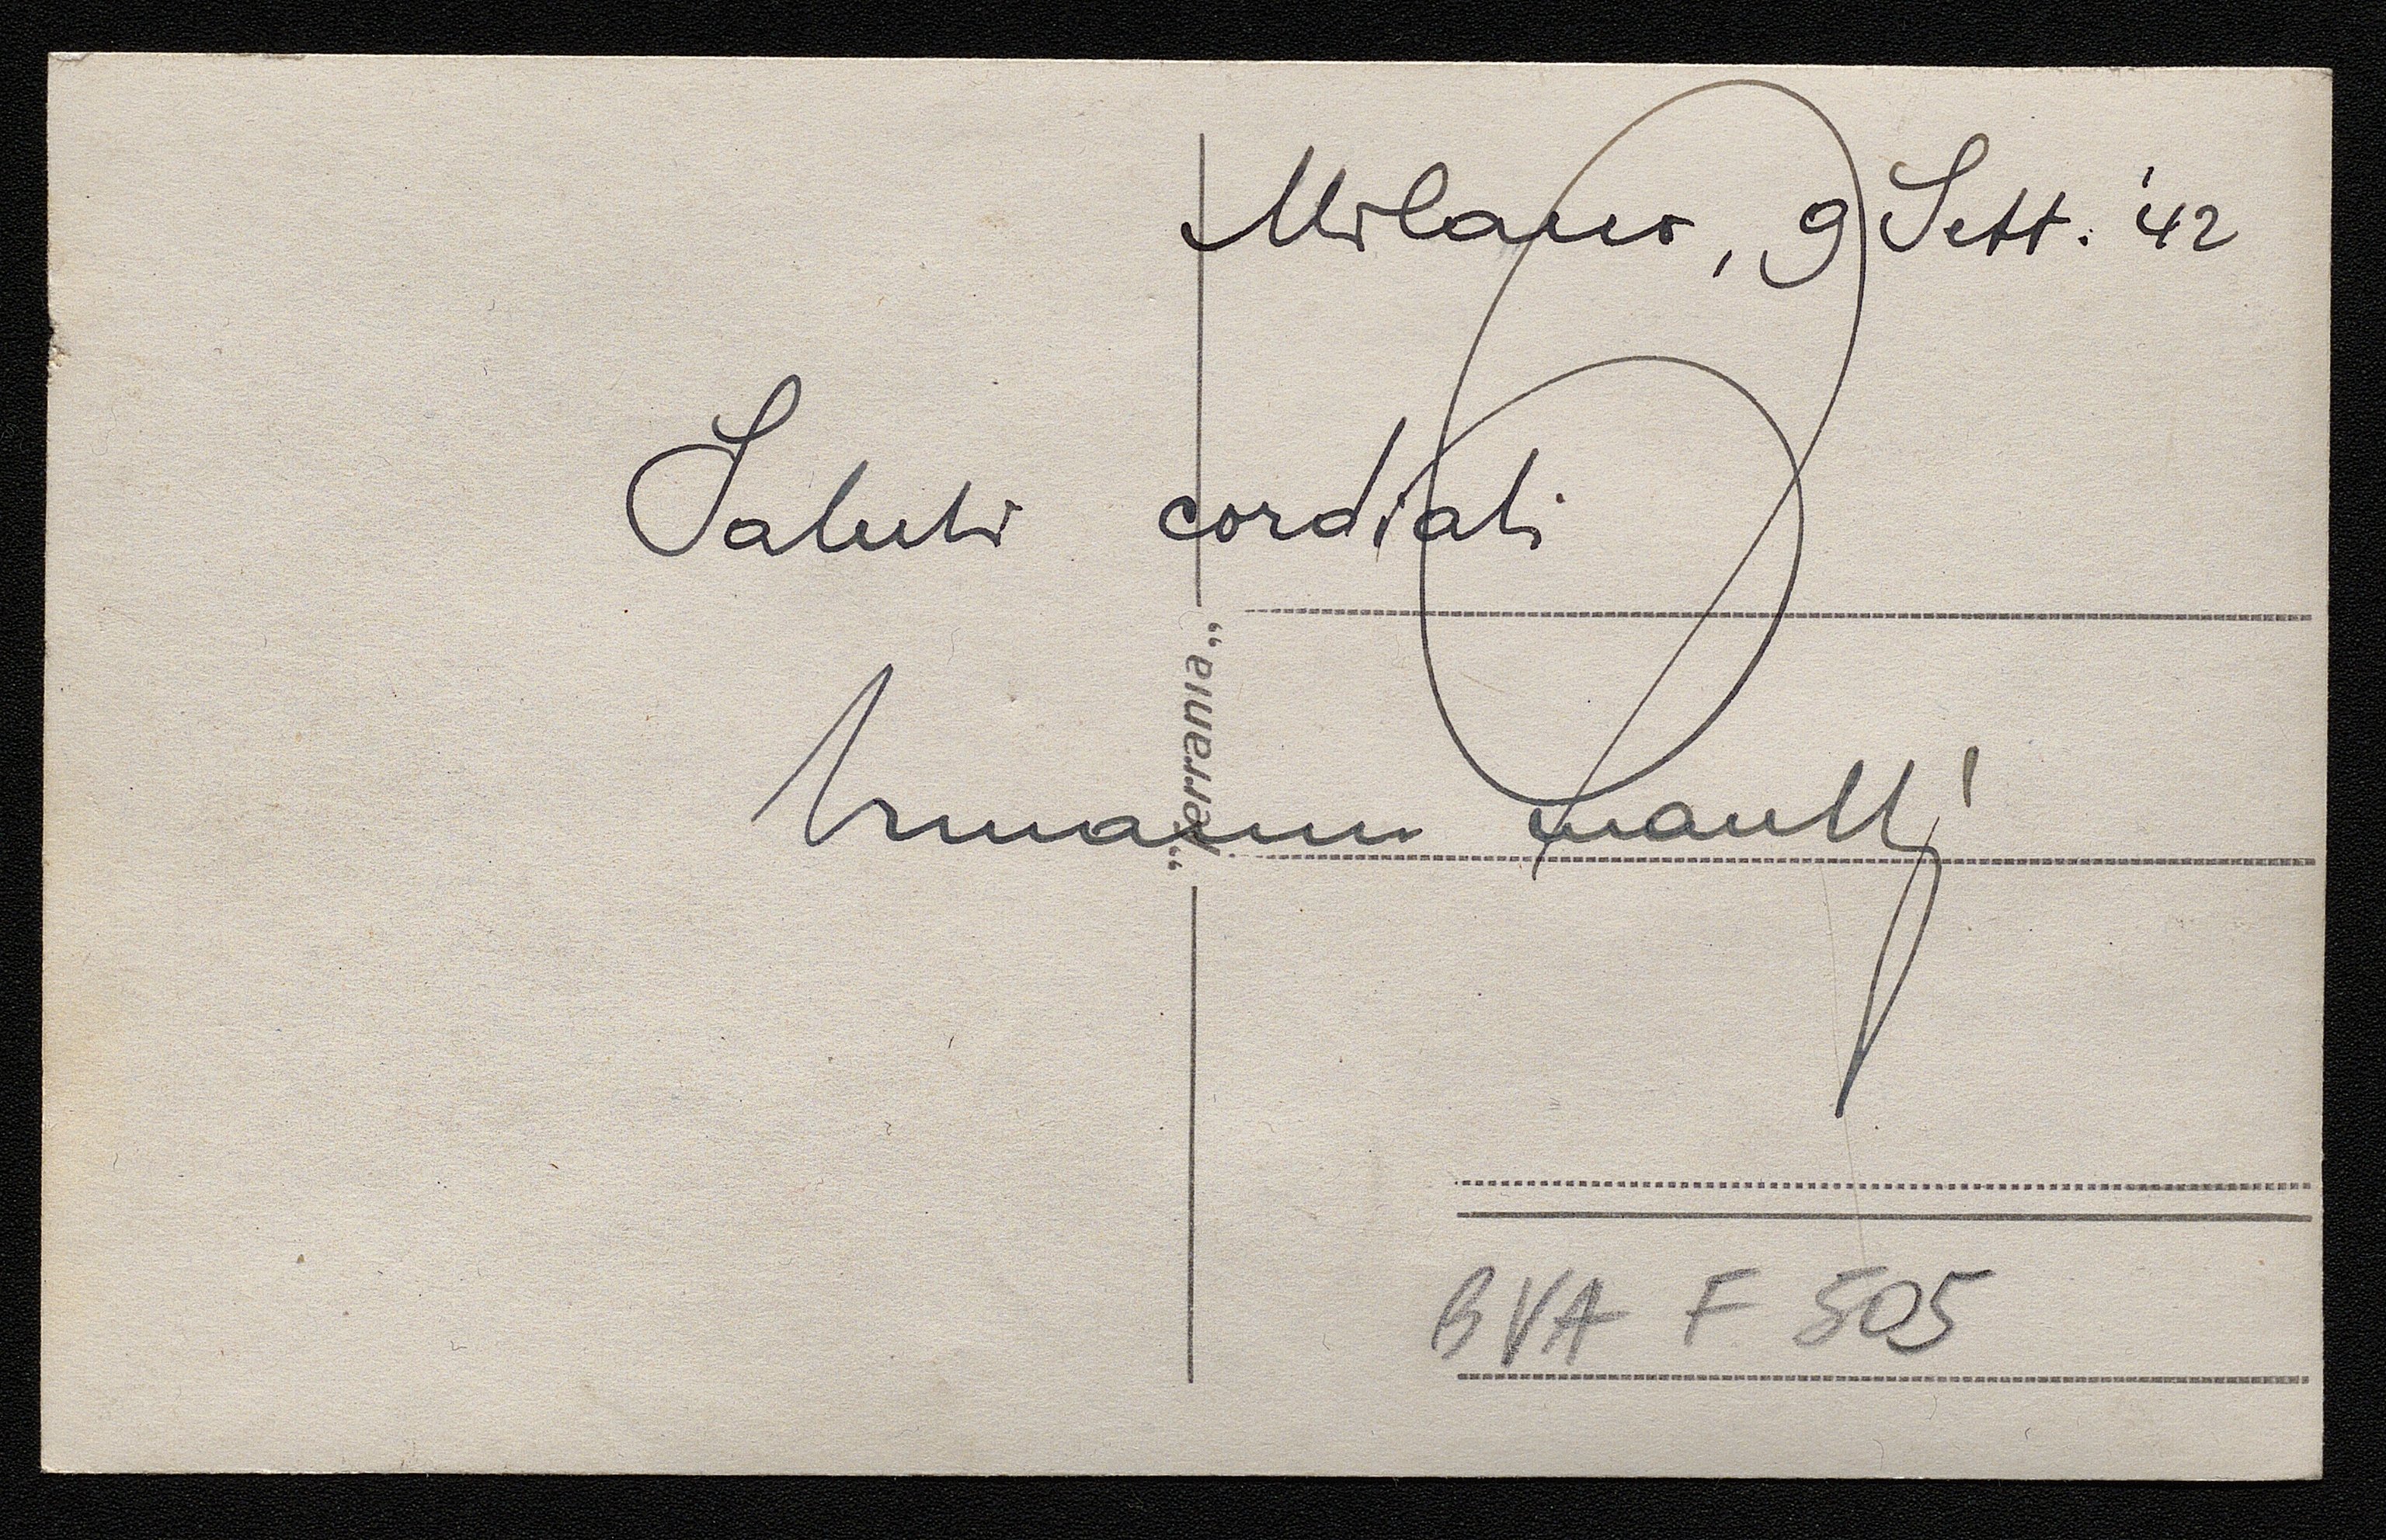 Milano, 9 Sett. '42
Saluti cordiali
"ferrania"
BVA F 505